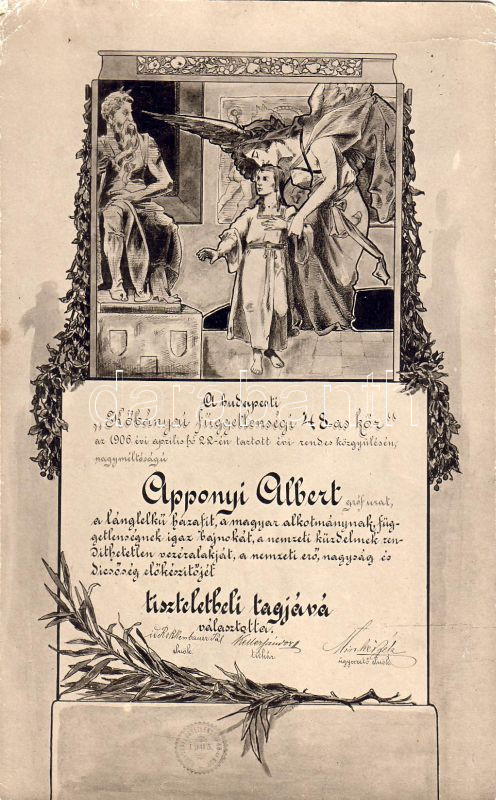 A budapesti
„Kőbányai függetlenségi 48-as kör"
az 1906. évi április hó 22-én tartott évi rendes közgyűlésén,
nagyméltóságú
Apponyi Albert gróf urat,
a lánglelkű hazafit, a magyar alkotmánynak, füg-
getlenségnek igaz bajnokát, a nemzeti küzdelmek ren-
dithetetlen vezéralakját, a nemzeti erő, nagyság és
dicsőség előkészitőjét
tiszteletbeli tagjává
választotta.
elnök.
titkár.
ügyvezető elnök.